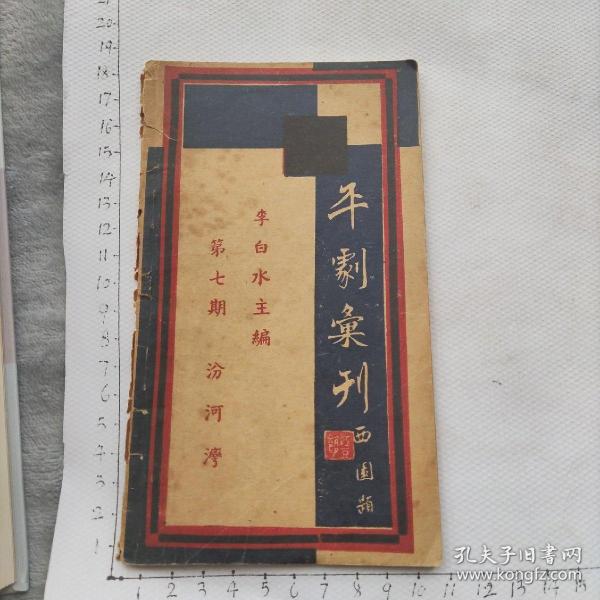 平劇彙刊
西園題
李白水主編
第七期 汾河灣
21
20
19
18
17
16
15
14
13
12
11
10
9
8
7
6
5
4
3
2
1
1 2 3 4 5 6 7 8 9 10 11 12 13 14 15
孔夫子旧书网
www.kongfz.com